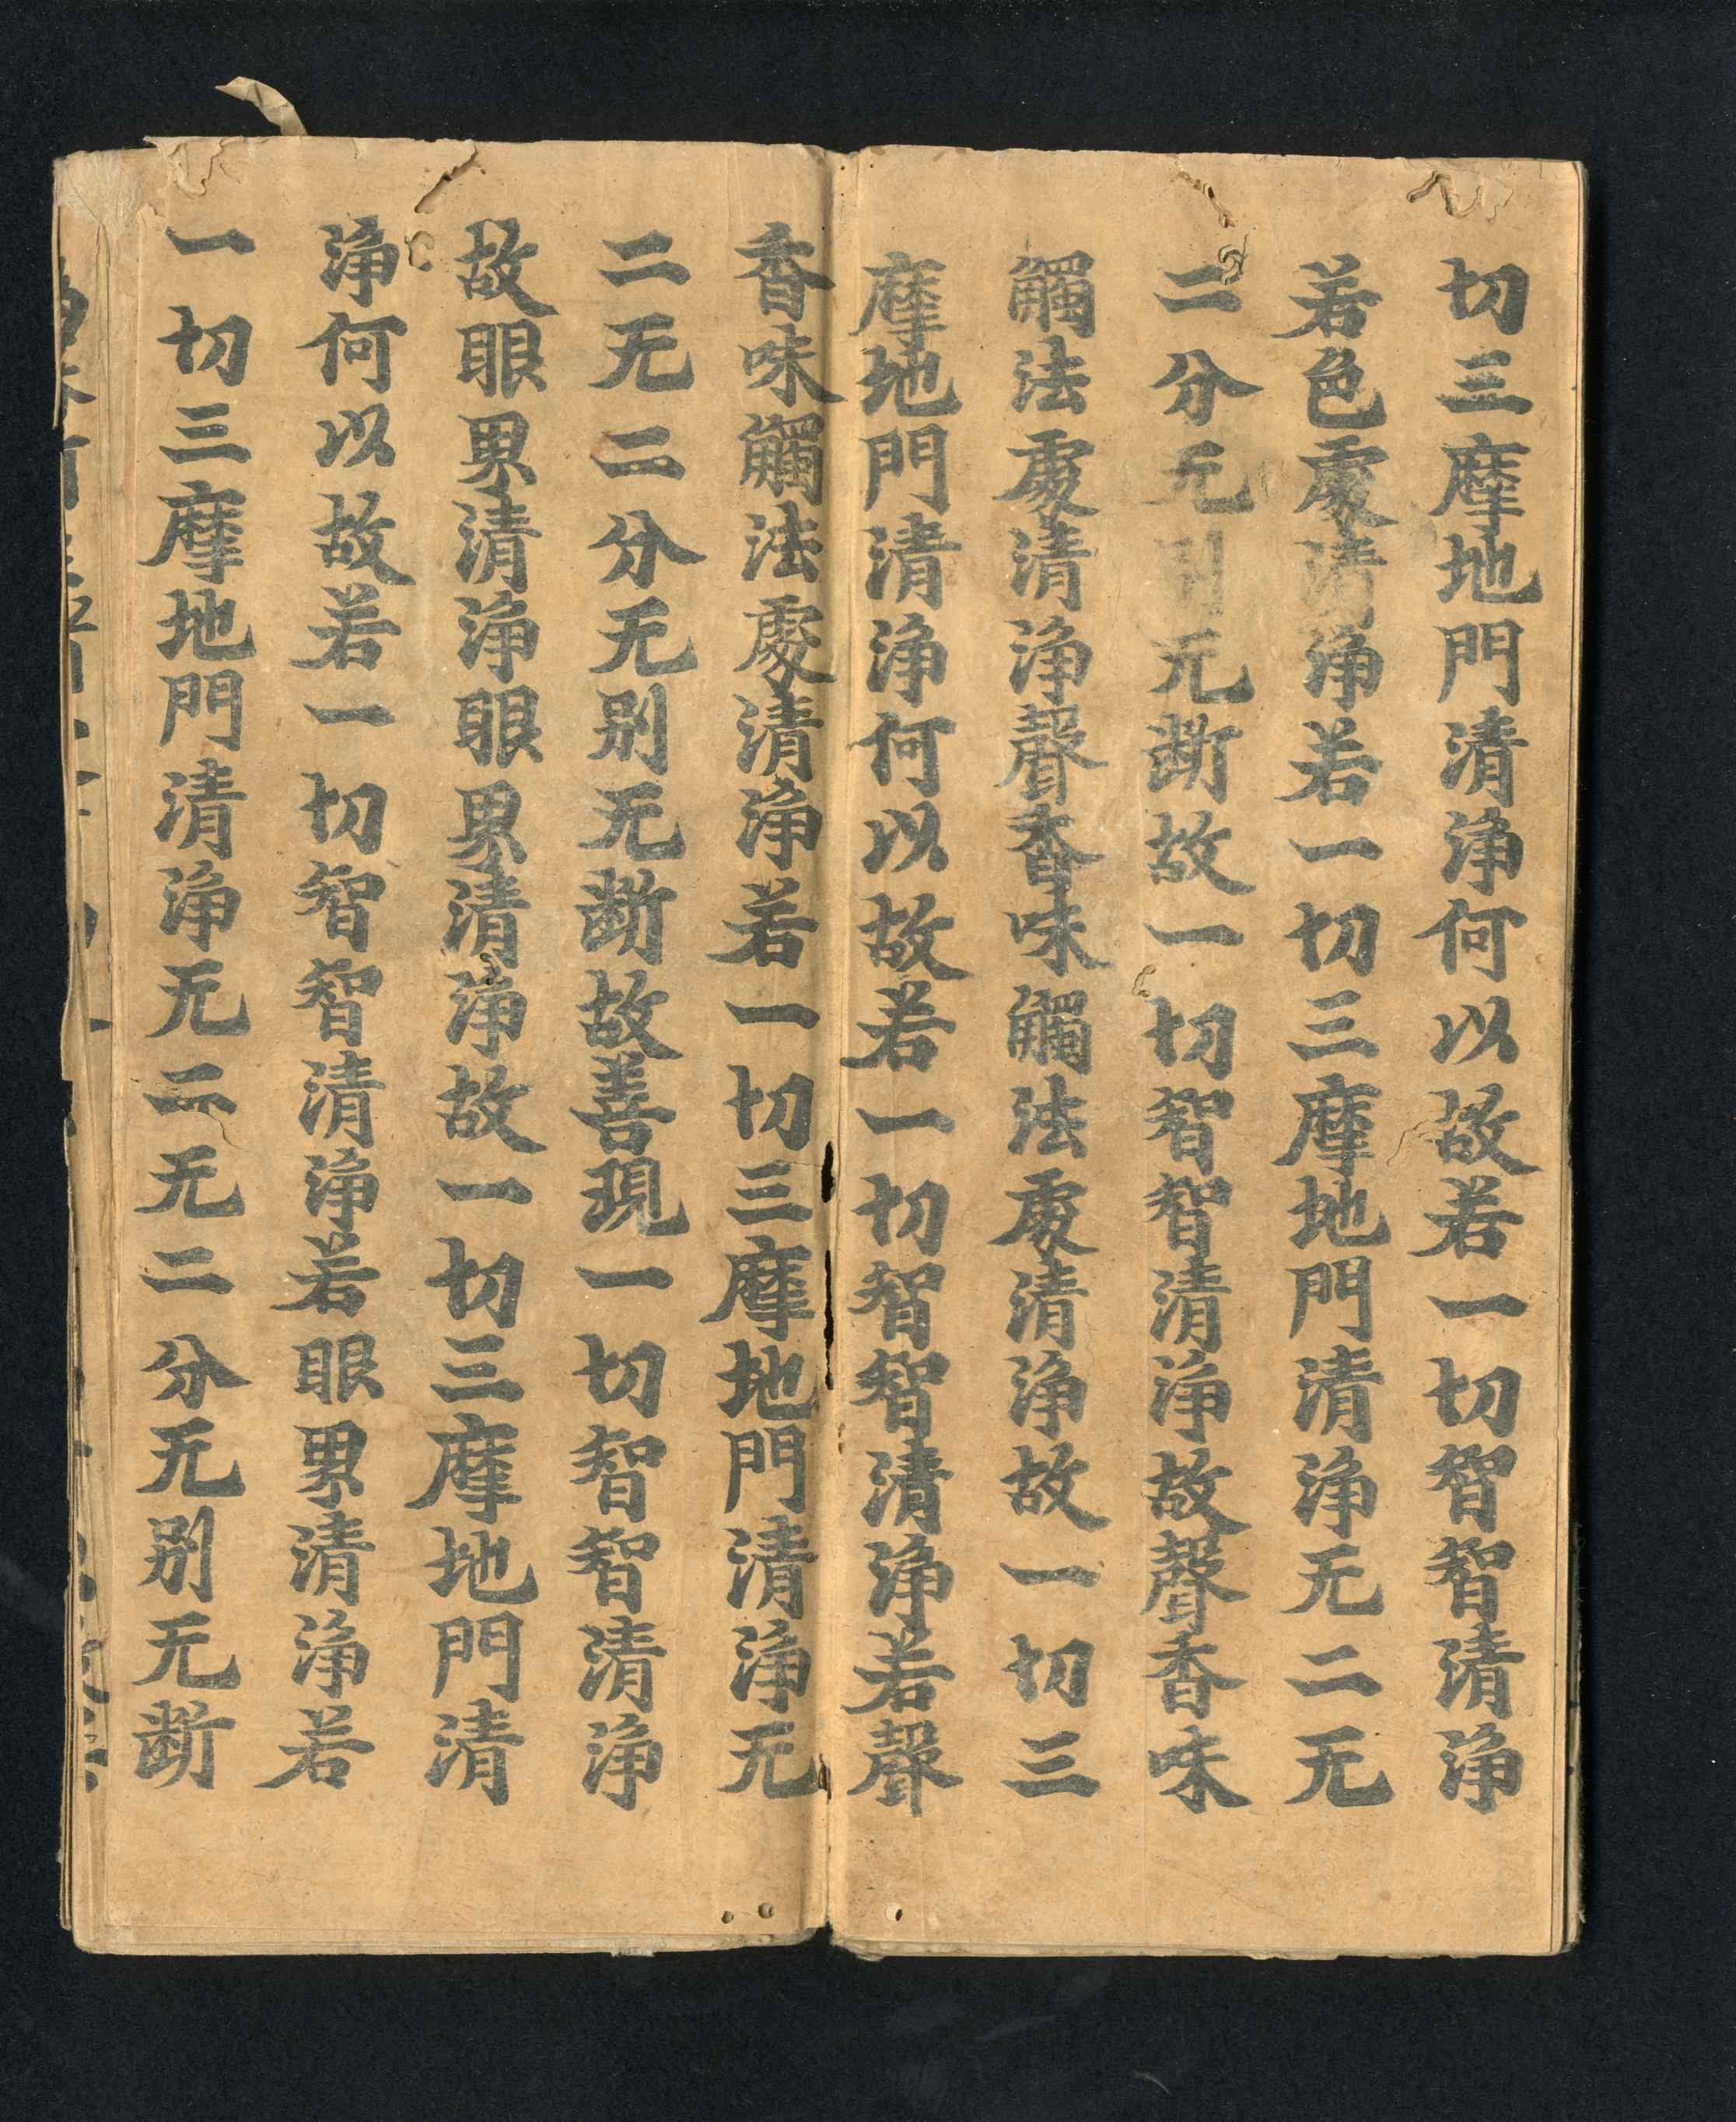 切三摩地門清淨何以故若一切智智清淨
若色處清淨若一切三摩地門清淨无二无
二分无別无断故一切智智清淨故聲香味
觸法處清淨聲香味觸法處清淨故一切三
摩地門清淨何以故若一切智智清淨若聲
香味觸法處清淨若一切三摩地門清淨无
二无二分无別无断故善現一切智智清淨
故眼界清淨眼界清淨故一切三摩地門清
淨何以故若一切智智清淨若眼界清淨若
一切三摩地門清淨无二无二分无別无断